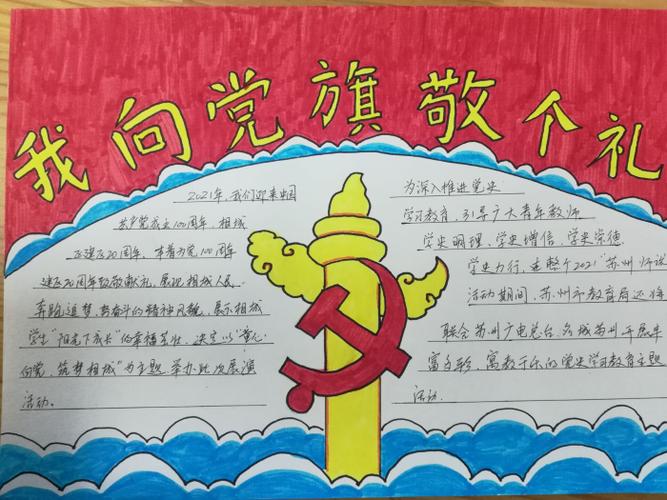 我向党旗敬个礼
2021年,我们迎来中国
共产党成立100周年,相城
区建区20周年,本着为党100周年
建区20周年致敬献礼,展现相城人民
奔跑追梦、奋斗的精神风貌,展示相城
学生"阳光下成长"的幸福,决定以"童心
向党,筑梦相城"为主题举办此次展演
活动。
为深入推进党史
学习教育,引导广大青年教师
学史明理,学史增信,学史崇德
学史力行,在整个2021"苏州·师说
活动期间,苏州市教育局还将
联合苏州广电总台,名城苏州开展丰
富多彩,寓教于乐的党史学习教育主题
活动.